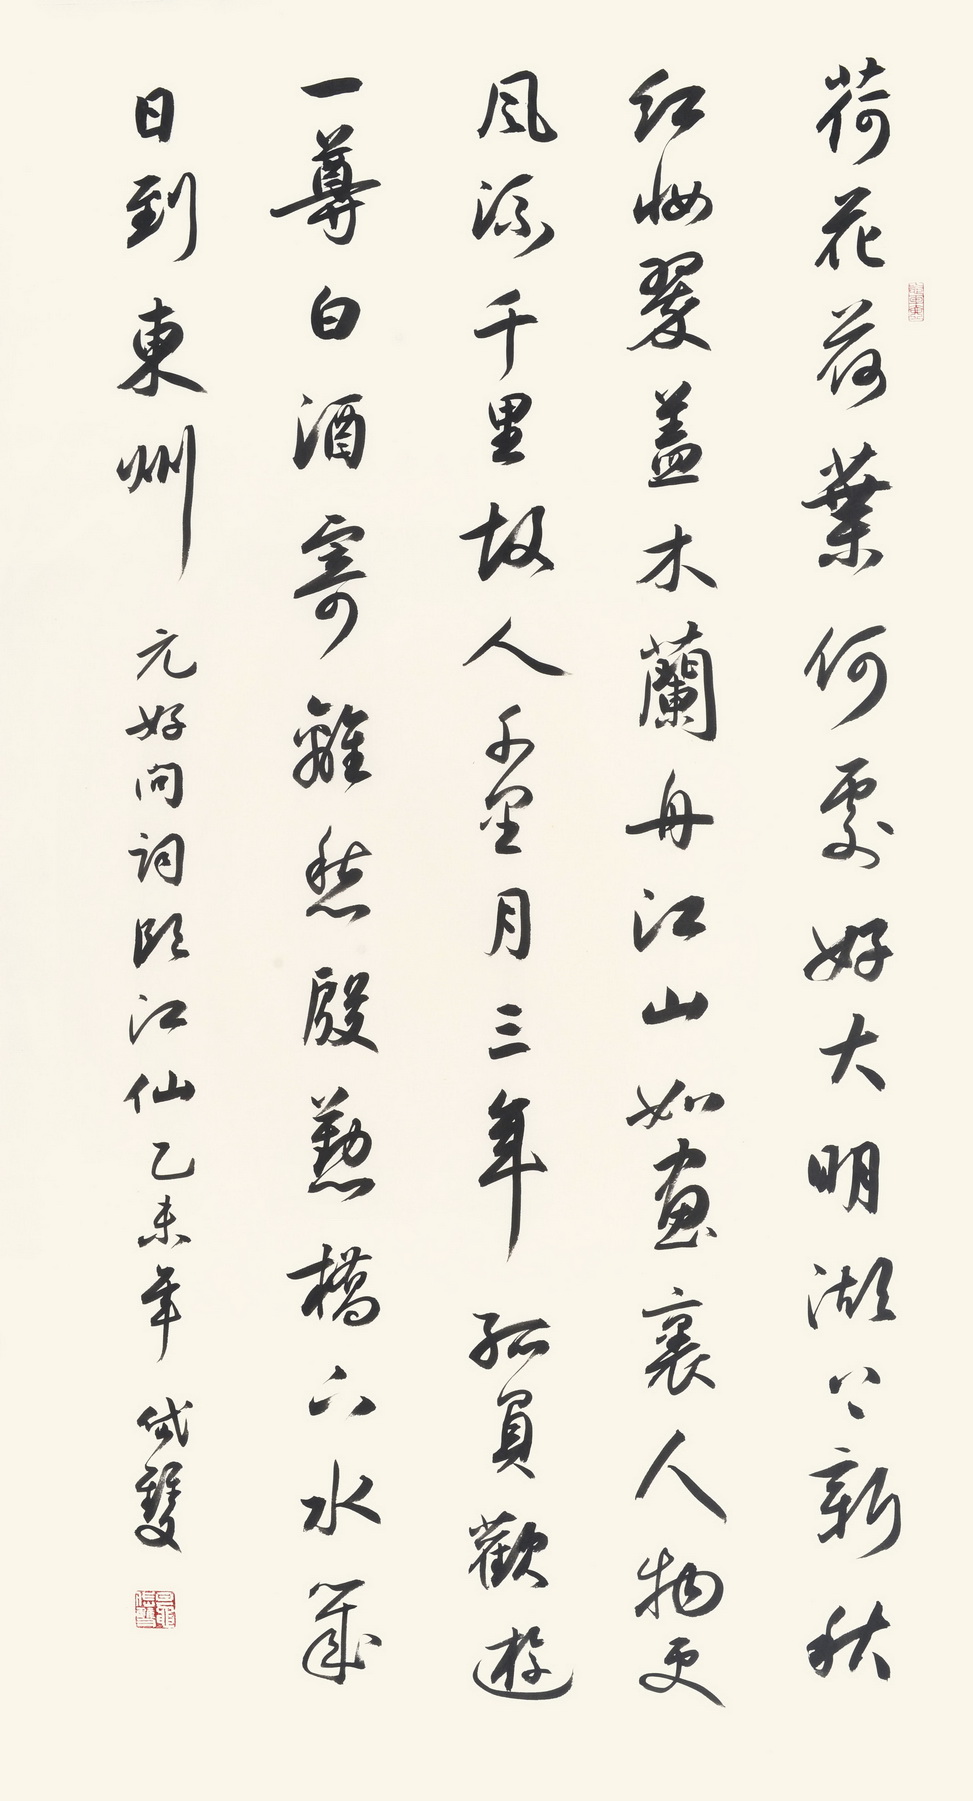 荷花荷葉何處好大明湖上新秋
紅妝翠蓋木蘭舟江山如畫裏人物更
風流千里故人千里月三年孤負歡遊
一尊白酒寄離愁殷勤橋下水幾
日到東州
元好問詞臨江仙乙未年